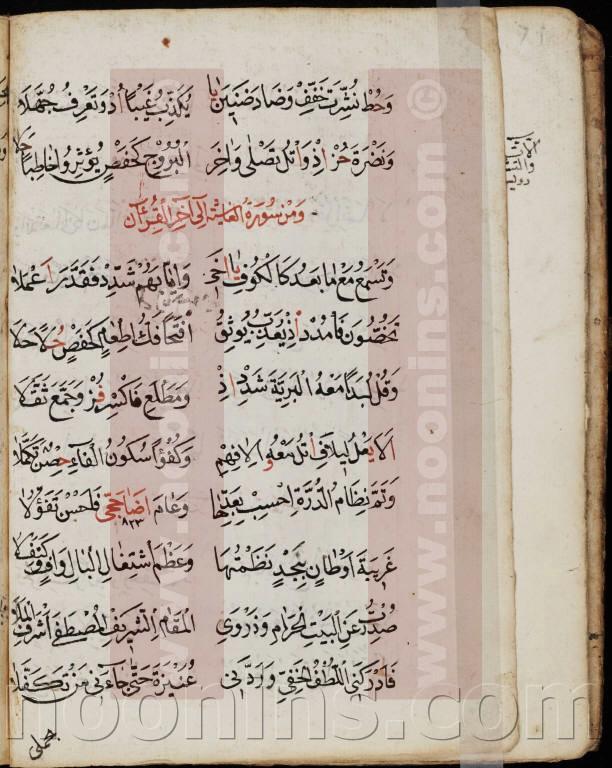 وحط نشرت خفف وضاد ضنين يا يكذب غيبا أد وتعرف جهلا
ونضرة حز اذ واتل تصلى واخر البروج كحفص يؤثروا خاطبا حلا
ومن سورة الغاشية الى آخر القرءان
وتسمع مع ما بعد كالكوف يا اخي وايابهم شدد فقدر اعملا
تحضون فامدد اذ يعذب يوثق افتحا فك اطعام كحفص حلا حلا
وقل لبدا معه البرية شد اذ ومطلع فاكسر فز وجمع ثقلا
الا يعل ليلاف أتل معه والافهم وكفؤا سكون الفاء حصن تكملا
وتم نظام الدرة احسب بعدها وعام اضا حجي فاحسن تقولا
٨٢٣
غريبة اوطان بنجد نظمتها وعظم اشتغال البال واف وكيف لا
صددت عن البيت الحرام وزوري المقام الشريف المصطفى اشرف الملا
فادركني اللطف الخفي وردني عنيزة حتى جاءني من تكفلا
بحملي
www.noonins.com
noonins.com